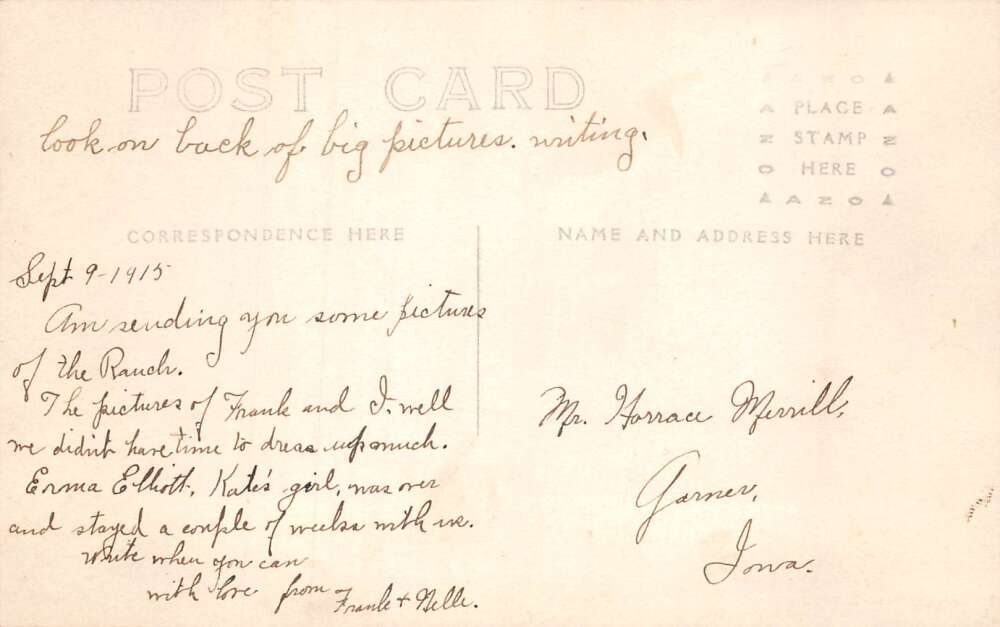 POST CARD
look on back of big pictures. writing.
AZO
A PLACE A
Z STAMP Z
O HERE O
AZO
CORRESPONDENCE HERE
NAME AND ADDRESS HERE
Sept 9-1915
Am sending you some pictures
of the Ranch.
The pictures of Frank and I. well
we didn't have time to dress up much.
Erma Elliott, Kate's girl, was over
and stayed a couple of weeks with us.
Write when you can
with love from
Frank + Nelle.
Mr. Horrace Merrill,
Garner,
Iowa.